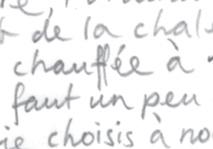 de la chal
chauffée à
faut un peu
je choisis à no